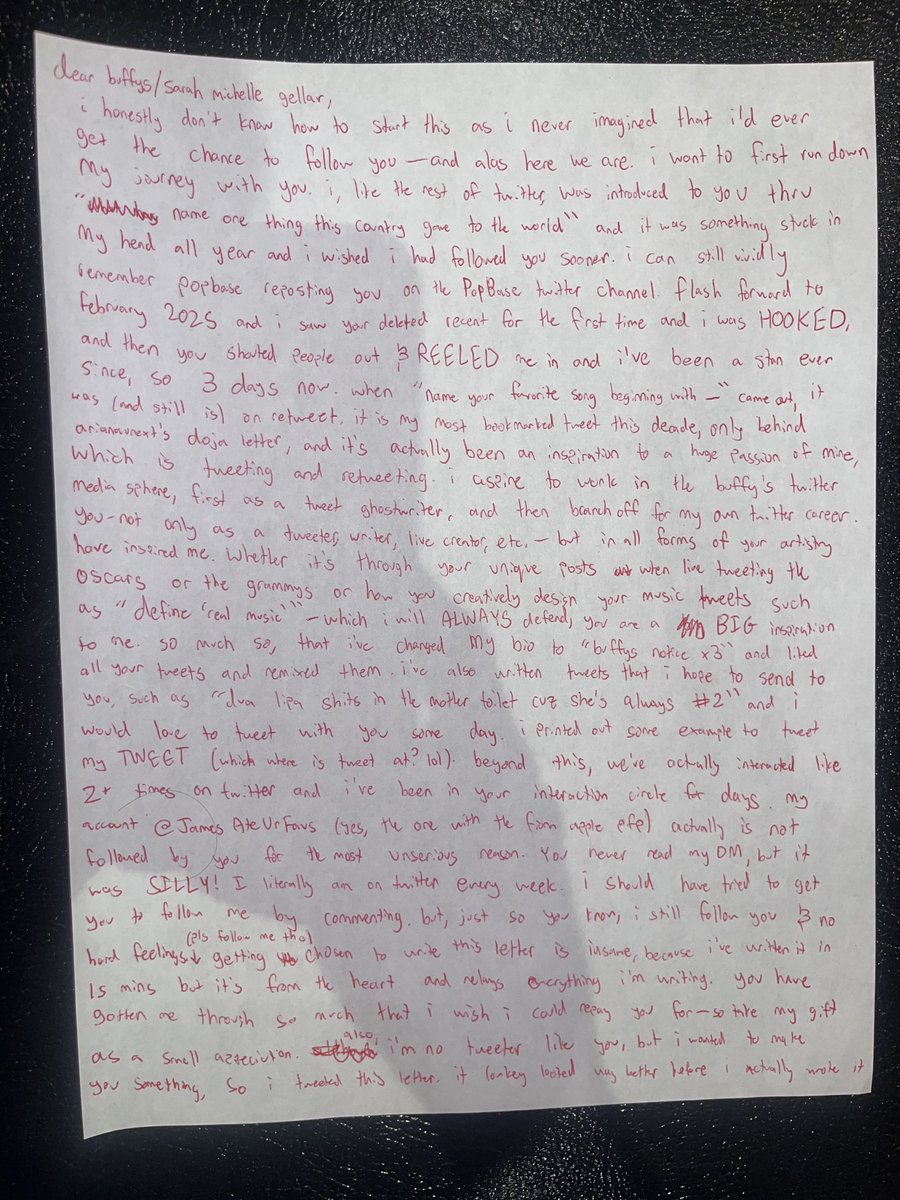 dear buffys/sarah michelle gellar,
i honestly don't know how to start this as i never imagined that i'd ever
get the chance to follow you — and alas here we are. i want to first run down
my journey with you. i, like the rest of twitter, was introduced to you thru
" name one thing this country gave to the world" and it was something stuck in
my head all year and i wished i had followed you sooner. i can still vividly
remember popbase reposting you on the PopBase twitter channel. flash forward to
february 2025 and i saw your deleted recent for the first time and i was HOOKED,
and then you shouted people out & REELED me in and i've been a stan ever
since, so 3 days now. when "name your favorite song beginning with —" came out, it
was (and still is) on retweet. it is my most bookmarked tweet this decade, only behind
arianaunext's doja letter, and it's actually been an inspiration to a huge passion of mine,
which is tweeting and retweeting. i aspire to work in the buffy's twitter
media sphere, first as a tweet ghostwriter, and then branch off for my own twitter career.
you - not only as a tweeter, writer, live creator, etc. - but in all forms of your artistry
have inspired me. whether it's through your unique posts when live tweeting the
oscars or the grammys or how you creatively design your music tweets such
as "define 'real music'" - which i will ALWAYS defend, you are a BIG inspiration
to me. so much so, that i've changed my bio to "buffys notice x3" and liked
all your tweets and remixed them. i've also written tweets that i hope to send to
you, such as "dua lipa shits in the mother toilet cuz she's always #2" and i
would love to tweet with you some day. i printed out some example to tweet
my TWEET (which where is tweet at? lol). beyond this, we've actually interacted like
2+ times on twitter and i've been in your interaction circle for days. my
account @JamesAteUrFavs (yes, the one with the fiona apple pfp) actually is not
followed by you for the most unserious reason. You never read my DM, but it
was SILLY! I literally am on twitter every week. i should have tried to get
you to follow me by commenting. but, just so you know, i still follow you & no
(pls follow me tho)
hard feelings↓ getting chosen to write this letter is insane, because i've written it in
15 mins but it's from the heart and relays everything i'm writing. you have
gotten me through so much that i wish i could repay you for — so take my gift
as a small also i'm no tweeter like you, but i wanted to make
you something, so i tweeted this letter. it lowkey looked way better before i actually wrote it